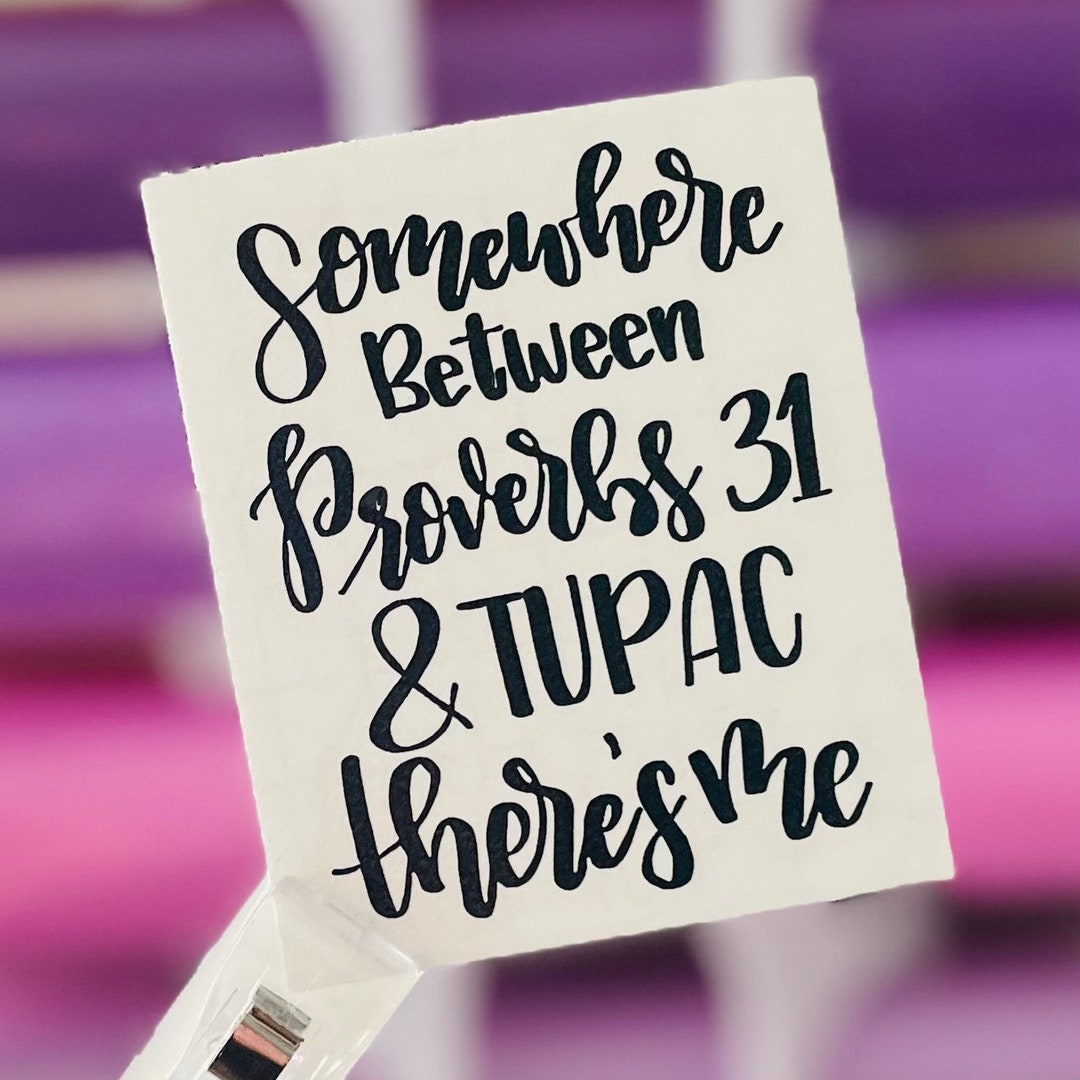 Somewhere
Between
Proverbs 31
& TUPAC
there's me